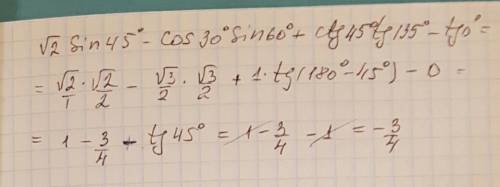 √2 sin45° - cos30° sin60° + ctg45° tg135° - tg0° =
= √2/1 · √2/2 - √3/2 · √3/2 + 1 · tg(180° - 45°) - 0 =
= 1 - 3/4 - tg45° = 1 - 3/4 - 1 = -3/4